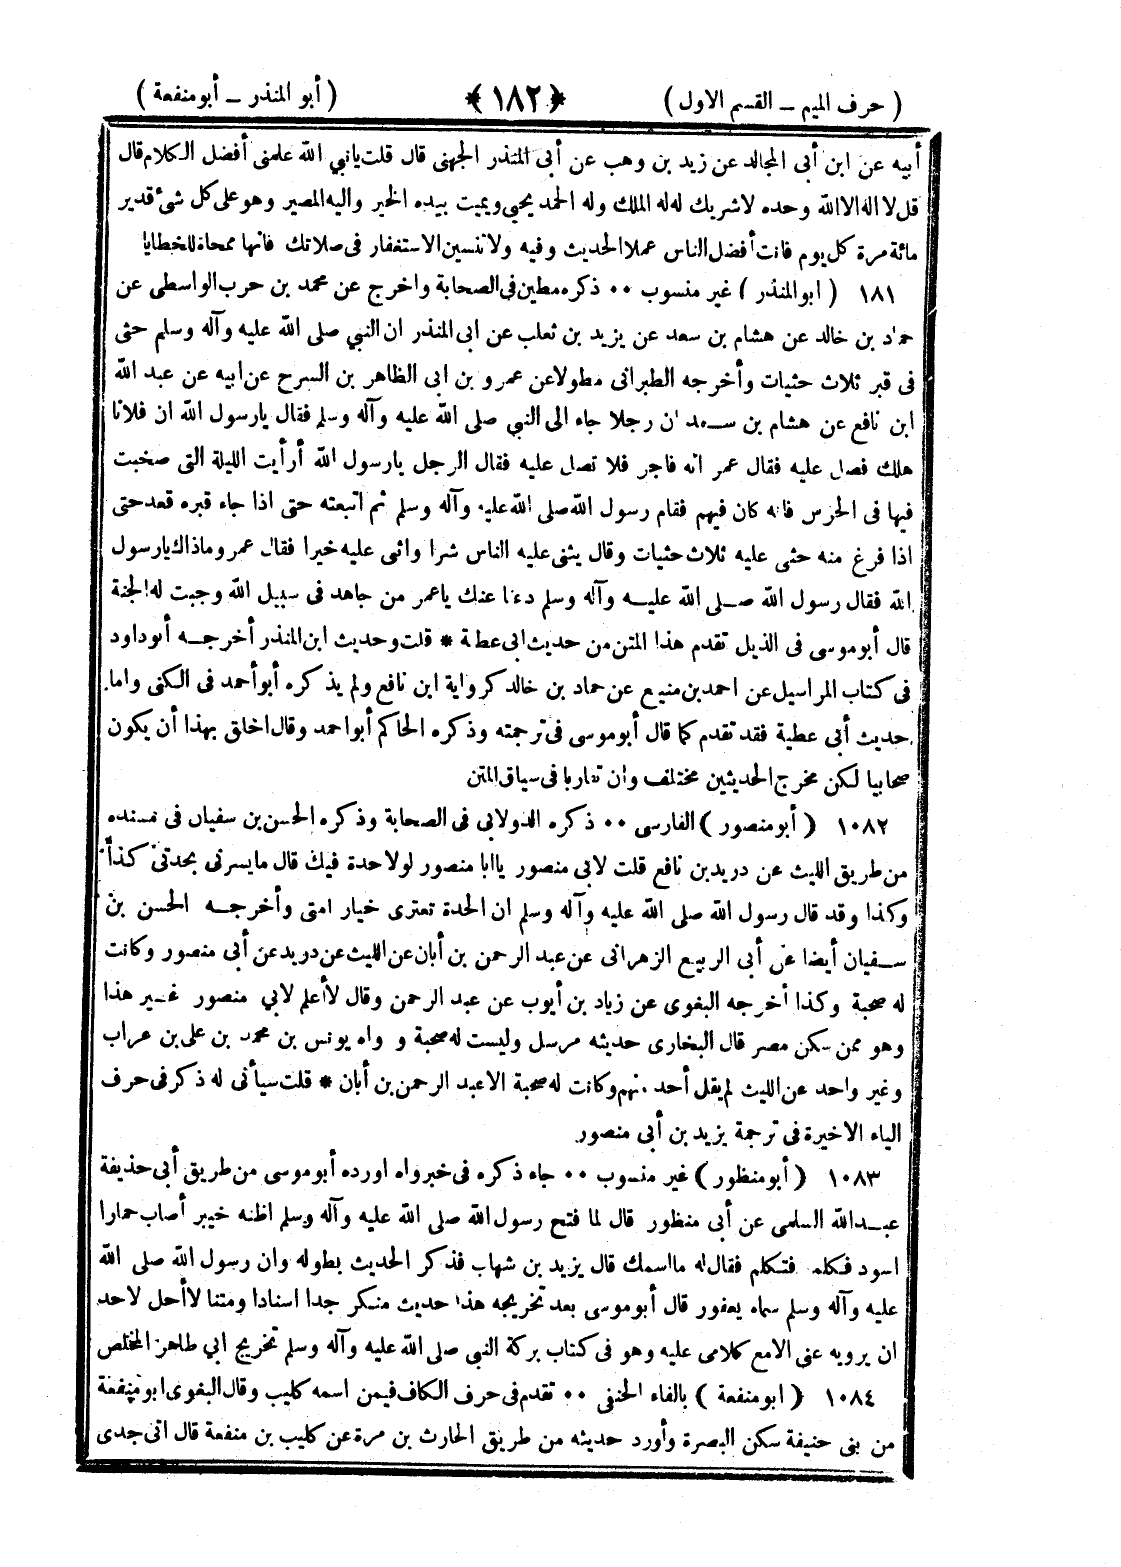 ( حرف الميم ــ القسم الاول ) ﴿ ١٨٢ ﴾ ( أبو المنذر ــ أبو منفعة )
أبيه عن ابن أبى المجالد عن زيد بن وهب عن أبى المنذر الجهنى قال قلت يانبي الله علمنى أفضل الكلام قال
قل لا اله الا الله وحده لاشريك له له الملك وله الحمد يحيى ويميت بيده الخير واليه المصير وهو على كل شئ قدير
مائة مرة كل يوم فانت أفضل الناس عملا الحديث وفيه ولا تنسين الاستغفار فى صلاتك فانها ممحاة للخطايا
١٨١ ( ابو المنذر ) غير منسوب ٠٠ ذكره مطين فى الصحابة واخرج عن محمد بن حرب الواسطى عن
حماد بن خالد عن هشام بن سعد عن يزيد بن ثعلب عن ابى المنذر ان النبي صلى الله عليه وآله وسلم حثى
فى قبر ثلاث حثيات وأخرجه الطبرانى مطولا عن عمرو بن ابى الظاهر بن السرح عن ابيه عن عبد الله
ابن نافع عن هشام بن سعد ان رجلا جاء الى النبي صلى الله عليه وآله وسلم فقال يارسول الله ان فلانا
هلك فصل عليه فقال عمر انه فاجر فلا تصل عليه فقال الرجل يارسول الله أرأيت الليلة التى صخبت
فيها فى الحرس فانه كان فيهم فقام رسول الله صلى الله عليه وآله وسلم ثم اتبعته حتى اذا جاء قبره قعد حتى
اذا فرغ منه حثى عليه ثلاث حثيات وقال يثنى عليه الناس شرا واثى عليه خيرا فقال عمر وماذاك يارسول
الله فقال رسول الله صلى الله عليه وآله وسلم دعنا عنك ياعمر من جاهد فى سبيل الله وجبت له الجنة
قال أبوموسى فى الذيل تقدم هذا المتن من حديث ابى عطة * قلت وحديث ابن المنذر أخرجه أبوداود
فى كتاب المراسيل عن احمد بن منيع عن حماد بن خالد كرواية ابن نافع ولم يذكره أبو أحمد فى الكنى واما
حديث أبى عطية فقد تقدم كما قال أبوموسى فى ترجمته وذكره الحاكم أبو احمد وقال اخلق بهذا أن يكون
صحابيا لكن مخرج الحديثين مختلف وان تقاربا فى سياق المتن
١٠٨٢ ( أبو منصور ) الفارسى ٠٠ ذكره الدولابي فى الصحابة وذكره الحسن بن سفيان فى مسنده
من طريق الليث عن دريد بن نافع قلت لابي منصور ياابا منصور لولا حدة فيك قال مايسرنى بحدتى كذا
وكذا وقد قال رسول الله صلى الله عليه وآله وسلم ان الحدة تعترى خيار امتى وأخرجه الحسن بن
سفيان أيضا عن أبى الربيع الزهرانى عن عبد الرحمن بن أبان عن الليث عن دريد عن أبى منصور وكانت
له صحبة وكذا أخرجه البغوى عن زياد بن أيوب عن عبد الرحمن وقال لا أعلم لابي منصور غير هذا
وهو ممن سكن مصر قال البخارى حديثه مرسل وليست له صحبة و واه يونس بن محمد بن على بن عراب
وغير واحد عن الليث لم يقل أحد منهم وكانت له صحبة الا عبد الرحمن بن أبان * قلت سيأتى له ذكر فى حرف
الياء الاخيرة فى ترجمة يزيد بن أبى منصور
١٠٨٣ ( أبو منظور ) غير منسوب ٠٠ جاء ذكره فى خبر واه اورده أبوموسى من طريق أبى حذيفة
عبدالله السلمى عن أبى منظور قال لما فتح رسول الله صلى الله عليه وآله وسلم اظنه خيبر أصاب حمارا
اسود فكلمه فتكلم فقال له مااسمك قال يزيد بن شهاب فذكر الحديث بطوله وان رسول الله صلى الله
عليه وآله وسلم سماه يعفور قال أبوموسى بعد تخريجه هذا حديث منكر جدا اسنادا ومتنا لا أحل لاحد
ان يرويه عنى الا مع كلامى عليه وهو فى كتاب بركة النبي صلى الله عليه وآله وسلم تخريج ابي طاهر المخلص
١٠٨٤ ( ابو منفعة ) بالفاء الحنفى ٠٠ تقدم فى حرف الكاف فيمن اسمه كليب وقال البغوى ابو منفعة
من بنى حنيفة سكن البصرة وأورد حديثه من طريق الحارث بن مرة عن كليب بن منفعة قال اتى جدى